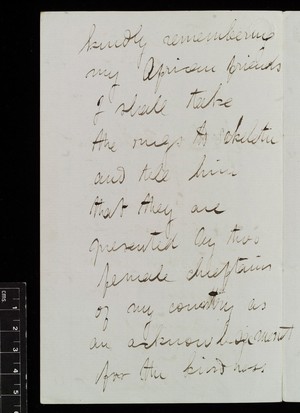 kindly remembering
my African friends
I shall take
the rugs to
and tell him
that they are
presented by two
female chieftains
of my country as
an acknowledgement
for the kindness
CMS 1 2 3 4 5